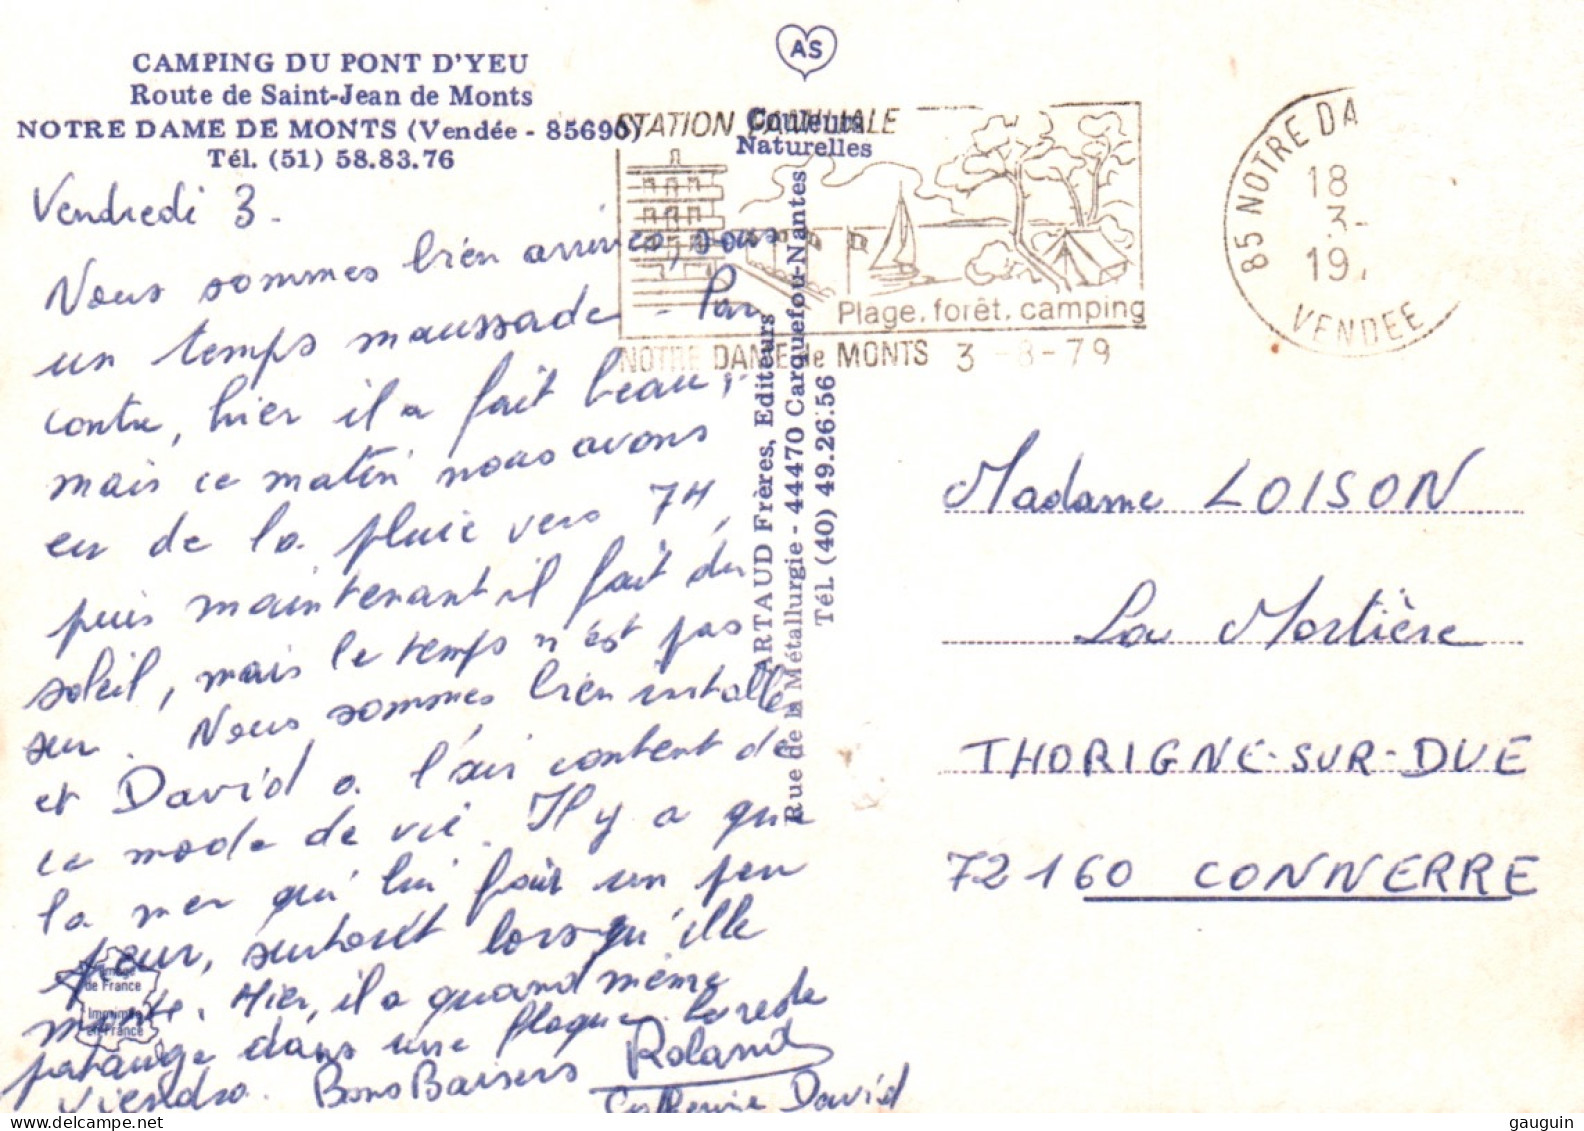 CAMPING DU PONT D'YEU
Route de Saint-Jean de Monts
NOTRE DAME DE MONTS (Vendée - 85690)
Tél. (51) 58.83.76
AS
Couleurs
Naturelles
STATION FAMILIALE
Plage. forêt. camping
NOTRE DAME de MONTS 3 -8-79
85 NOTRE DA
18
3-
19
VENDEE
Vendredi 3.
Nous sommes bien arrivés, sous
un temps maussade. Par
contre, hier il a fait beau,
mais ce matin nous avons
eu de la pluie vers 7H,
puis maintenant il fait du
soleil, mais le temps n'est pas
sur. Nous sommes bien installés
et David a l'air content de
ce mode de vie. Il y a que
la mer qui lui fait un peu
peur, surtout lorsqu'elle
monte. Hier, il a quand même
patauge dans une flaque. Le reste
viendra. Bons Baisers Roland
Catherine David
Image
de France
Imprimé
en France
ARTAUD Frères, Editeurs
Rue de la Métallurgie - 44470 Carquefou-Nantes
Tél. (40) 49.26.56
Madame LOISON
La Mortière
THORIGNE-SUR-DUE
72160 CONNERRE
gauguin © delcampe.net